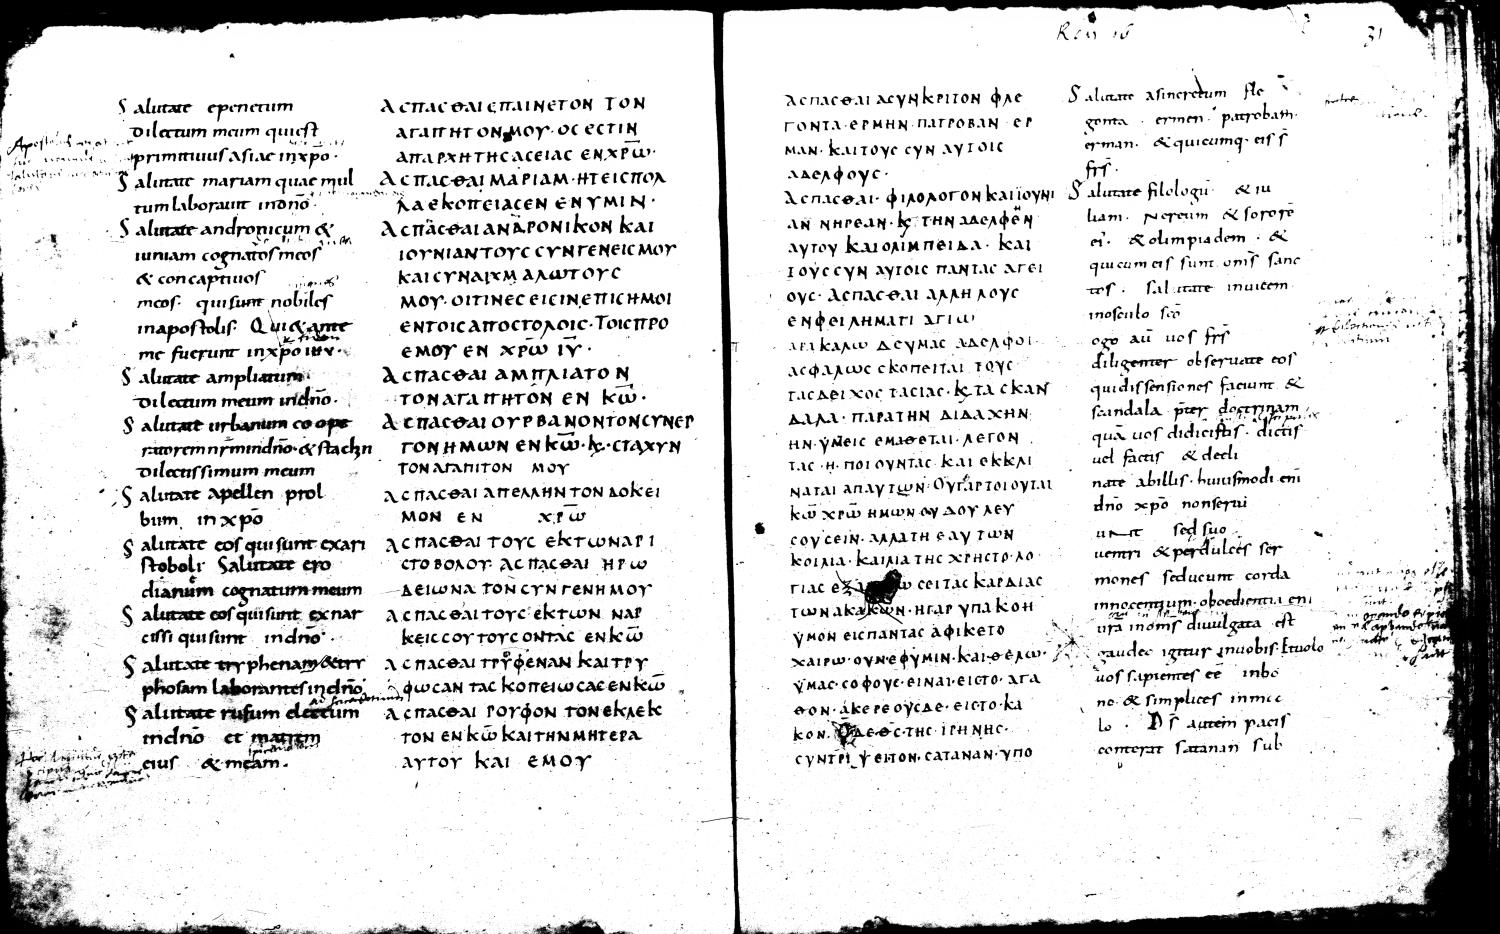 Salutate epenetum
dilectum meum qui est
primitiuus asiae in xp̄o·
Salutate mariam quae mul
tum laborauit in dn̄o·
Salutate andronicum &
iuniam cognatos meos
& concaptiuos
meos· qui sunt nobiles
in apostolis· Qui & ante
me fuerunt in xp̄o ihu·
Salutate ampliatum
dilectum meum in dn̄o·
Salutate urbanum coope
ratorem nr̄m in dn̄o· & stachn
dilectissimum meum
Salutate apellen prol
bum in xp̄o
Salutate eos qui sunt exari
stoboli Salutate ero
dianum cognatum meum
Salutate eos qui sunt ex nar
cissi qui sunt in dn̄o·
Salutate tryphenam & try
phosam laborantes in dn̄o
Salutate rufum electum
in dn̄o et matrem
eius & meam·
ΑϹΠΑϹΘΑΙ ΕΠΑΙΝΕΤΟΝ ΤΟΝ
ΑΓΑΠΗΤΟΝ ΜΟΥ· ΟϹ ΕϹΤΙΝ
ΑΠΑΡΧΗ ΤΗϹ ΑϹΕΙΑϹ ΕΝ ΧΡ̅Ω̅·
ΑϹΠΑϹΘΑΙ ΜΑΡΙΑΜ· ΗΤΕΙϹ ΠΟΛ
ΛΑ ΕΚΟΠΕΙΑϹΕΝ ΕΝ ΥΜΙΝ·
ΑϹΠΑϹΘΑΙ ΑΝΔΡΟΝΙΚΟΝ ΚΑΙ
ΙΟΥΝΙΑΝ ΤΟΥϹ ϹΥΝΓΕΝΕΙϹ ΜΟΥ
ΚΑΙ ϹΥΝΑΙΧΜΑΛΩΤΟΥϹ
ΜΟΥ· ΟΙΤΙΝΕϹ ΕΙϹΙΝ ΕΠΙϹΗΜΟΙ
ΕΝ ΤΟΙϹ ΑΠΟϹΤΟΛΟΙϹ· ΤΟΙϹ ΠΡΟ
ΕΜΟΥ ΕΝ ΧΡ̅Ω̅ ΙΥ̅·
ΑϹΠΑϹΘΑΙ ΑΜΠΛΙΑΤΟΝ
ΤΟΝ ΑΓΑΠΗΤΟΝ ΕΝ ΚΩ̅·
ΑϹΠΑϹΘΑΙ ΟΥΡΒΑΝΟΝ ΤΟΝ ϹΥΝΕΡ
ΓΟΝ ΗΜΩΝ ΕΝ ΚΩ̅· Ϗ· ϹΤΑΧΥΝ
ΤΟΝ ΑΓΑΠΙΤΟΝ ΜΟΥ
ΑϹΠΑϹΘΑΙ ΑΠΕΛΛΗΝ ΤΟΝ ΔΟΚΕΙ
ΜΟΝ ΕΝ ΧΡ̅Ω̅
ΑϹΠΑϹΘΑΙ ΤΟΥϹ ΕΚ ΤΩΝ ΑΡΙ
ϹΤΟΒΟΛΟΥ ΑϹΠΑϹΘΑΙ ΗΡΩ
ΔΕΙΩΝΑ ΤΟΝ ϹΥΝΓΕΝΗ ΜΟΥ
ΑϹΠΑϹΘΑΙ ΤΟΥϹ ΕΚ ΤΩΝ ΝΑΡ
ΚΕΙϹϹΟΥ ΤΟΥϹ ΟΝΤΑϹ ΕΝ ΚΩ̅
ΑϹΠΑϹΘΑΙ ΤΡΥΦΕΝΑΝ ΚΑΙ ΤΡΥ
ΦΩϹΑΝ ΤΑϹ ΚΟΠΕΙΩϹΑϹ ΕΝ ΚΩ̅
ΑϹΠΑϹΘΑΙ ΡΟΥΦΟΝ ΤΟΝ ΕΚΛΕΚ
ΤΟΝ ΕΝ ΚΩ̅ ΚΑΙ ΤΗΝ ΜΗΤΕΡΑ
ΑΥΤΟΥ ΚΑΙ ΕΜΟΥ
Rom 16
31
ΑϹΠΑϹΘΑΙ ΑϹΥΝΚΡΙΤΟΝ ΦΛΕ
ΓΟΝΤΑ· ΕΡΜΗΝ· ΠΑΤΡΟΒΑΝ ΕΡ
ΜΑΝ· ΚΑΙ ΤΟΥϹ ϹΥΝ ΑΥΤΟΙϹ
ΑΔΕΛΦΟΥϹ·
ΑϹΠΑϹΘΑΙ· ΦΙΛΟΛΟΓΟΝ ΚΑΙ ΪΟΥΝΙ
ΑΝ ΝΗΡΕΑΝ· Ϗ ΤΗΝ ΑΔΕΛΦΕΝ
ΑΥΤΟΥ ΚΑΙ ΟΛΙΜΠΕΙΔΑ· ΚΑΙ
ΤΟΥϹ ϹΥΝ ΑΥΤΟΙϹ ΠΑΝΤΑϹ ΑΓΕΙ
ΟΥϹ· ΑϹΠΑϹΘΑΙ ΑΛΛΗΛΟΥϹ
ΕΝ ΦΕΙΛΗΜΑΤΙ ΑΓΙΩ
ΑΡΑΚΑΛΩ ΔΕ ΥΜΑϹ ΑΔΕΛΦΟΙ
ΑϹΦΑΛΩϹ ϹΚΟΠΕΙΤΑΙ ΤΟΥϹ
ΤΑϹ ΔΕΙΧΟϹΤΑϹΙΑϹ· Ϗ ΤΑ ϹΚΑΝ
ΔΑΛΑ· ΠΑΡΑ ΤΗΝ ΔΙΔΑΧΗΝ
ΗΝ· ΥΜΕΙϹ ΕΜΑΘΕΤΑΙ· ΛΕΓΟΝ
ΤΑϹ· Η· ΠΟΙΟΥΝΤΑϹ ΚΑΙ ΕΚΚΛΙ
ΝΑΤΑΙ ΑΠ ΑΥΤΩΝ· ΟΥ ΓΑΡ ΤΟΙΟΥΤΑΙ
ΚΩ̅ ΧΡΩ̅ ΗΜΩΝ ΟΥ ΔΟΥΛΕΥ
ϹΟΥϹΕΙΝ· ΑΛΛΑ ΤΗ ΕΑΥΤΩΝ
ΚΟΙΛΙΑ· ΚΑΙ ΔΙΑ ΤΗϹ ΧΡΗϹΤΟΛΟ
ϹΕΙ ΤΑϹ ΚΑΡΔΙΑϹ
ΤΩΝ ΑΚΑΚΩΝ· Η ΓΑΡ ΥΠΑΚΟΗ
ΥΜΟΝ ΕΙϹ ΠΑΝΤΑϹ ΑΦΙΚΕΤΟ
ΧΑΙΡΩ· ΟΥΝ ΕΦ ΥΜΙΝ· ΚΑΙ ΘΕΛΩ·
ΥΜΑϹ· ϹΟΦΟΥϹ· ΕΙΝΑΙ· ΕΙϹ ΤΟ· ΑΓΑ
ΘΟΝ· ΑΚΕΡΕΟΥϹ ΔΕ· ΕΙϹ ΤΟ· ΚΑ
ΚΟΝ· Ο ΔΕ ΘϹ̅· ΤΗϹ ΙΡΗΝΗϹ·
ϹΥΝΤΡΙΨΕΙ ΤΟΝ· ϹΑΤΑΝΑΝ· ΥΠΟ
Salutate asincretum fle
gonta· ermen· patrobam·
erman· & quicumq· eis s̄
frs̄·
Salutate filologū & iu
liam· Nereum & sororē
ei'· & olimpiadem· &
qui cum eis sunt omīs sanc
tos· salutate inuicem
in osculo sc̄o
ogo aū uos frs̄
diligenter obseruate eos
qui dissensiones faciunt &
scandala pter doctrinam
quā uos didicistis· dictis
uel factis & decli
nate ab illis· huiusmodi eni
dn̄o xp̄o non serui
unt sed suo
uentri & per dulces ser
mones seducunt corda
innocentium· oboedientia eni
ur̄a in omīs diuulgata est
gaudeo igitur in uobis & uolo
uos sapientes eē in bo
ne & simplices in ma
lo· Ds̄ autem pacis
conterat satanan sub